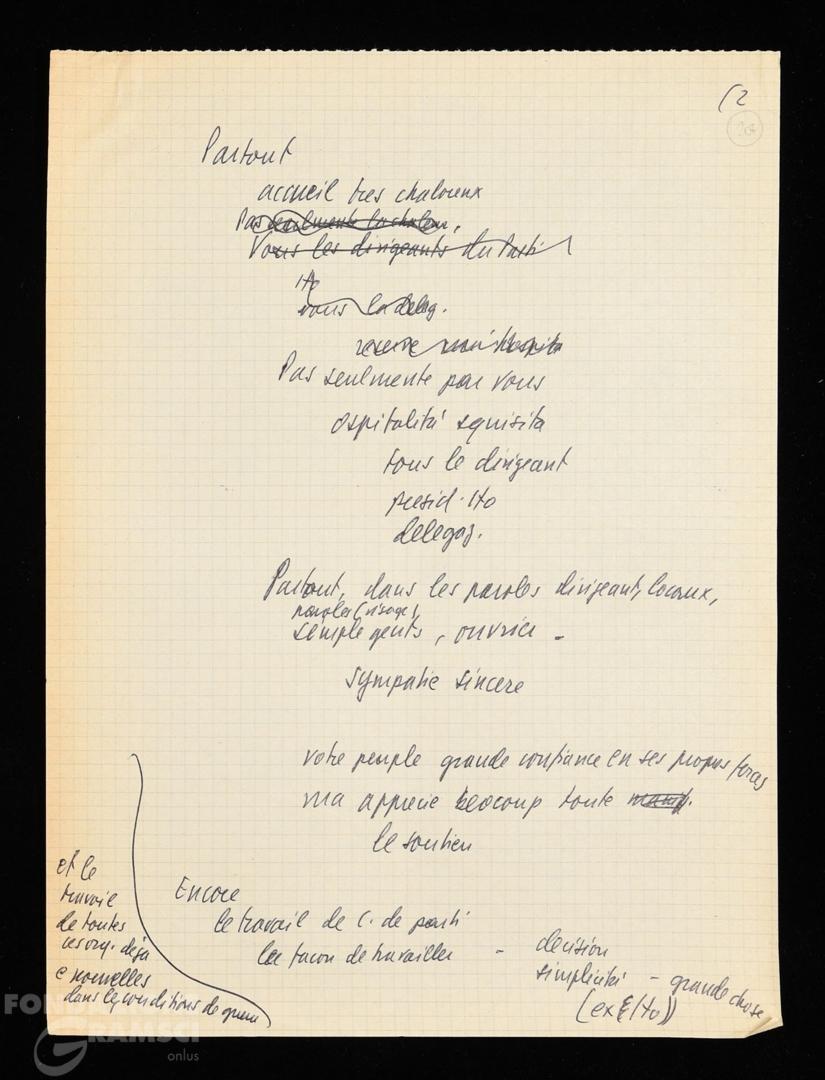 (2
Partout
accueil tres chaloreux
Pas seulmente la chaleur,
Vous les dirigeants du Parti
Ho
vous la deleg.
Pas seulmente par vous
ospitalità squisita
tous le dirigeant
presid. Ho
delegaz.
Partout, dans les paroles dirigeant, locaux,
paroles (visage),
semple gents, ouvrier -
sympatie sincere
votre peuple grande confiance en ses propres forces
ma apprecie beocoup toute
le soutien
Encore
le travail de C. de parti
la facon de travailler - decision
simplicité - grande chose
(ex Ho))
et le
travail
de toutes
ces org. déja
e nouvelles
dans les conditions de guerre
FONDAZIONE
GRAMSCI
onlus